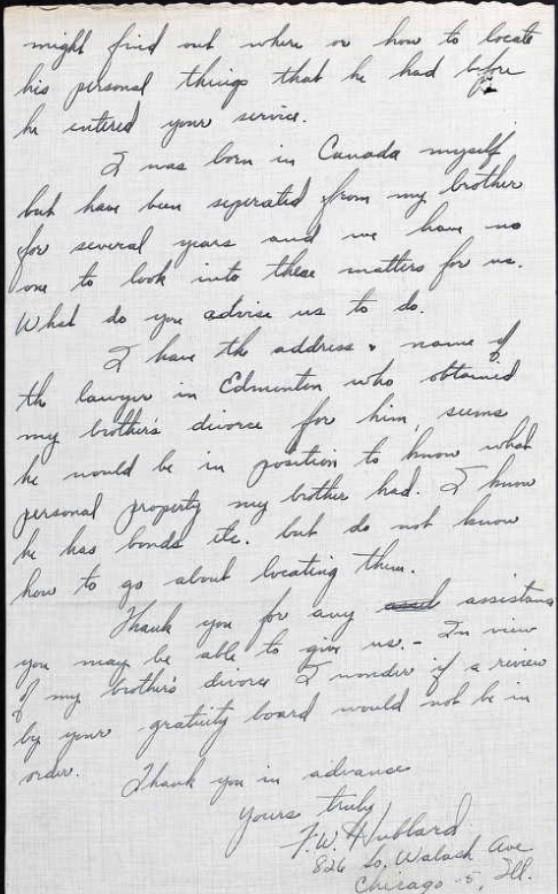 might find out where or how to locate
his personal things that he had before
he entered your service.
I was born in Canada myself
but have been seperated from my brother
for several years and we have no
one to look into these matters for us.
What do you advise us to do.
I have the address & name of
the lawyer in Edmonton who obtained
my brother's divorce for him, seems
he would be in position to know what
personal property my brother had. I know
he has bonds etc. but do not know
how to go about locating them.
Thank you for any assistance
you may be able to give us. - In view
of my brother's divorce I wonder if a review
by your gratuity board would not be in
order. Thank you in advance
Yours truly
F.W. Hubbard
826 So. Wabash Ave
Chicago -5- Ill.